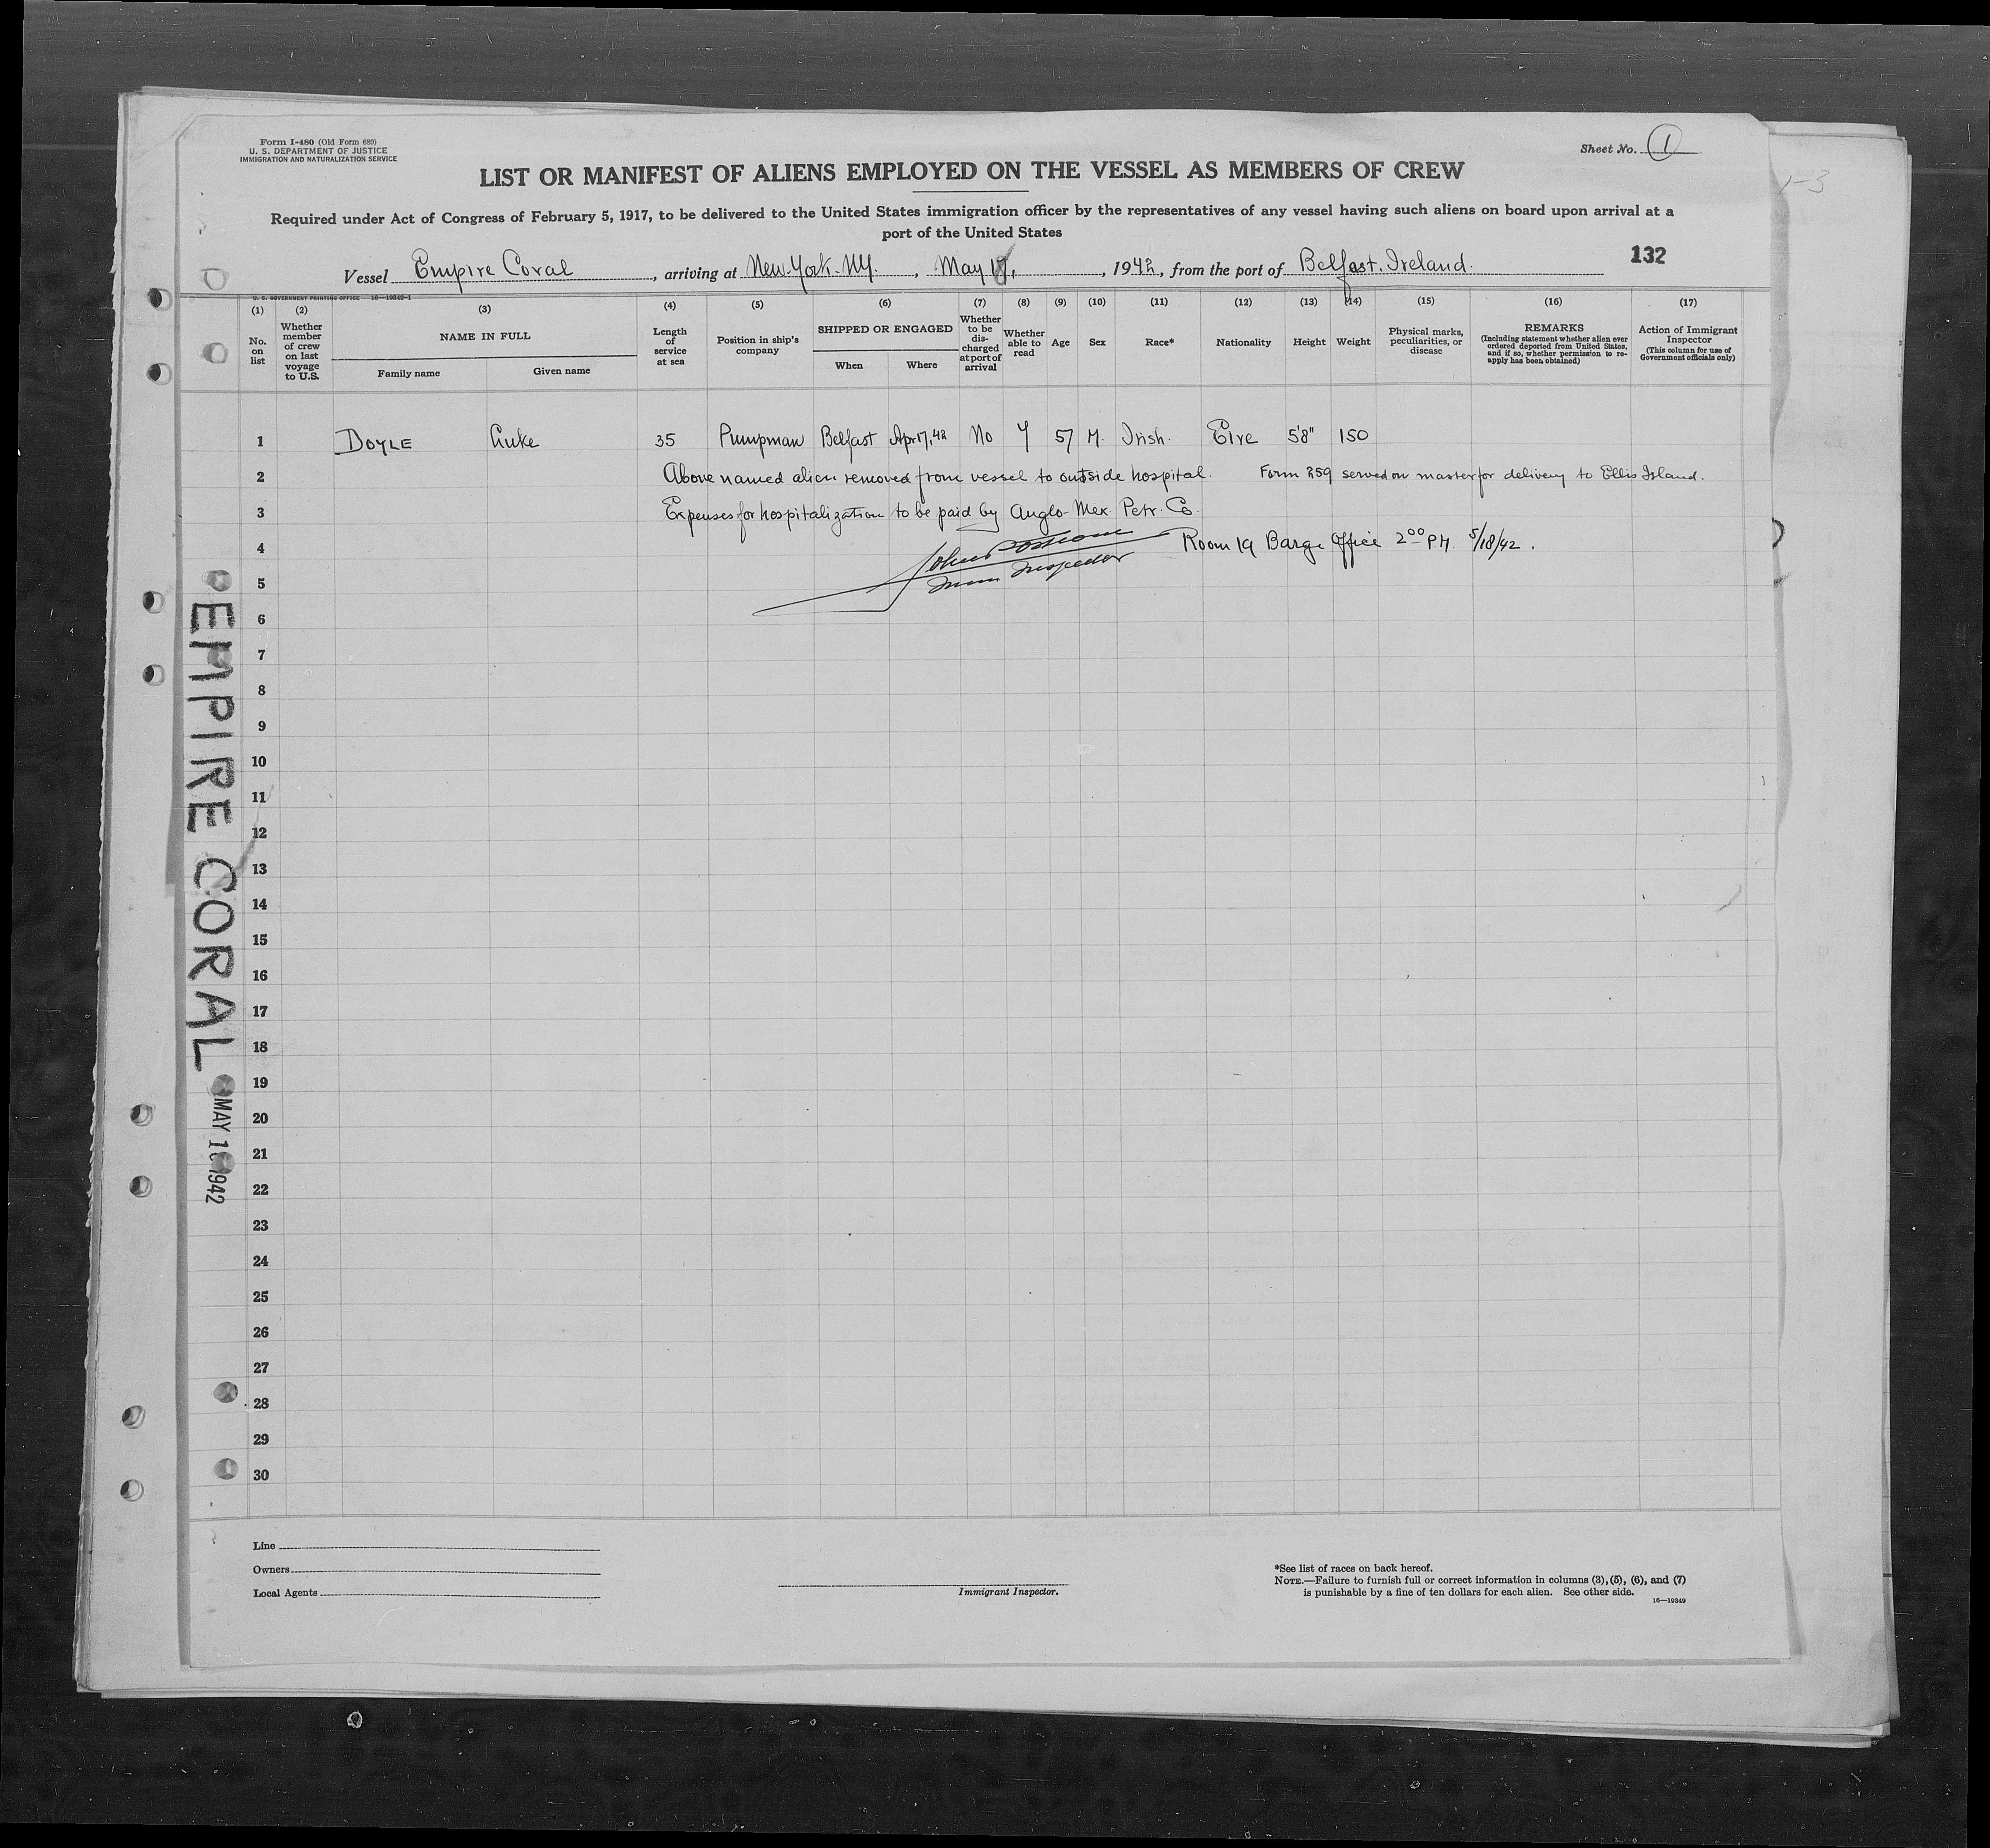 Form I-480 (Old Form 680)
U. S. DEPARTMENT OF JUSTICE
IMMIGRATION AND NATURALIZATION SERVICE
Sheet No. 1
1-3
LIST OR MANIFEST OF ALIENS EMPLOYED ON THE VESSEL AS MEMBERS OF CREW
Required under Act of Congress of February 5, 1917, to be delivered to the United States immigration officer by the representatives of any vessel having such aliens on board upon arrival at a
port of the United States
132
Vessel Empire Coral, arriving at New York. NY., May, 1942, from the port of Belfast. Ireland.
U. S. GOVERNMENT PRINTING OFFICE 16—19349-1
(1) (2) (3) (4) (5) (6) (7) (8) (9) (10) (11) (12) (13) (14) (15) (16) (17)
No. on list
Whether member of crew on last voyage to U.S.
NAME IN FULL
Family name
Given name
Length of service at sea
Position in ship's company
SHIPPED OR ENGAGED
When
Where
Whether to be discharged at port of arrival
Whether able to read
Age
Sex
Race*
Nationality
Height
Weight
Physical marks, peculiarities, or disease
REMARKS
(Including statement whether alien ever ordered deported from United States, and if so, whether permission to reapply has been obtained)
Action of Immigrant Inspector
(This column for use of Government officials only)
1 DOYLE Luke 35 Pumpman Belfast Apr 17, 42 No Y 57 M. Irish. Eire 5'8" 150
2 Above named alien removed from vessel to outside hospital. Form 259 served on master for delivery to Ellis Island.
3 Expenses for hospitalization to be paid by Anglo-Mex. Petr. Co.
4 Room 19 Barge Office 2 00 PM. 5/18/42.
5 Imm Inspector
6
7
8
9
10
11
12
13
14
15
16
17
18
19
20
21
22
23
24
25
26
27
28
29
30
EMPIRE CORAL
MAY 1942
Line
Owners
Local Agents
Immigrant Inspector.
*See list of races on back hereof.
NOTE.—Failure to furnish full or correct information in columns (3), (5), (6), and (7)
is punishable by a fine of ten dollars for each alien. See other side.
16—19349